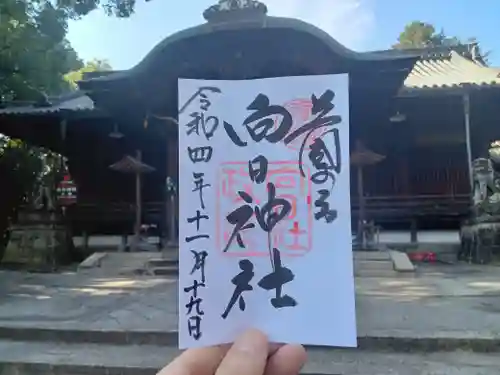 向日神社
令和四年十一月十九日